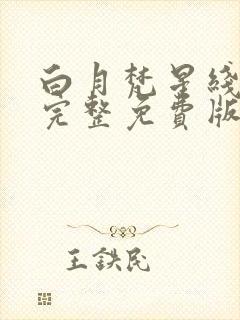 白月梵星线
完整免费版
王铁民